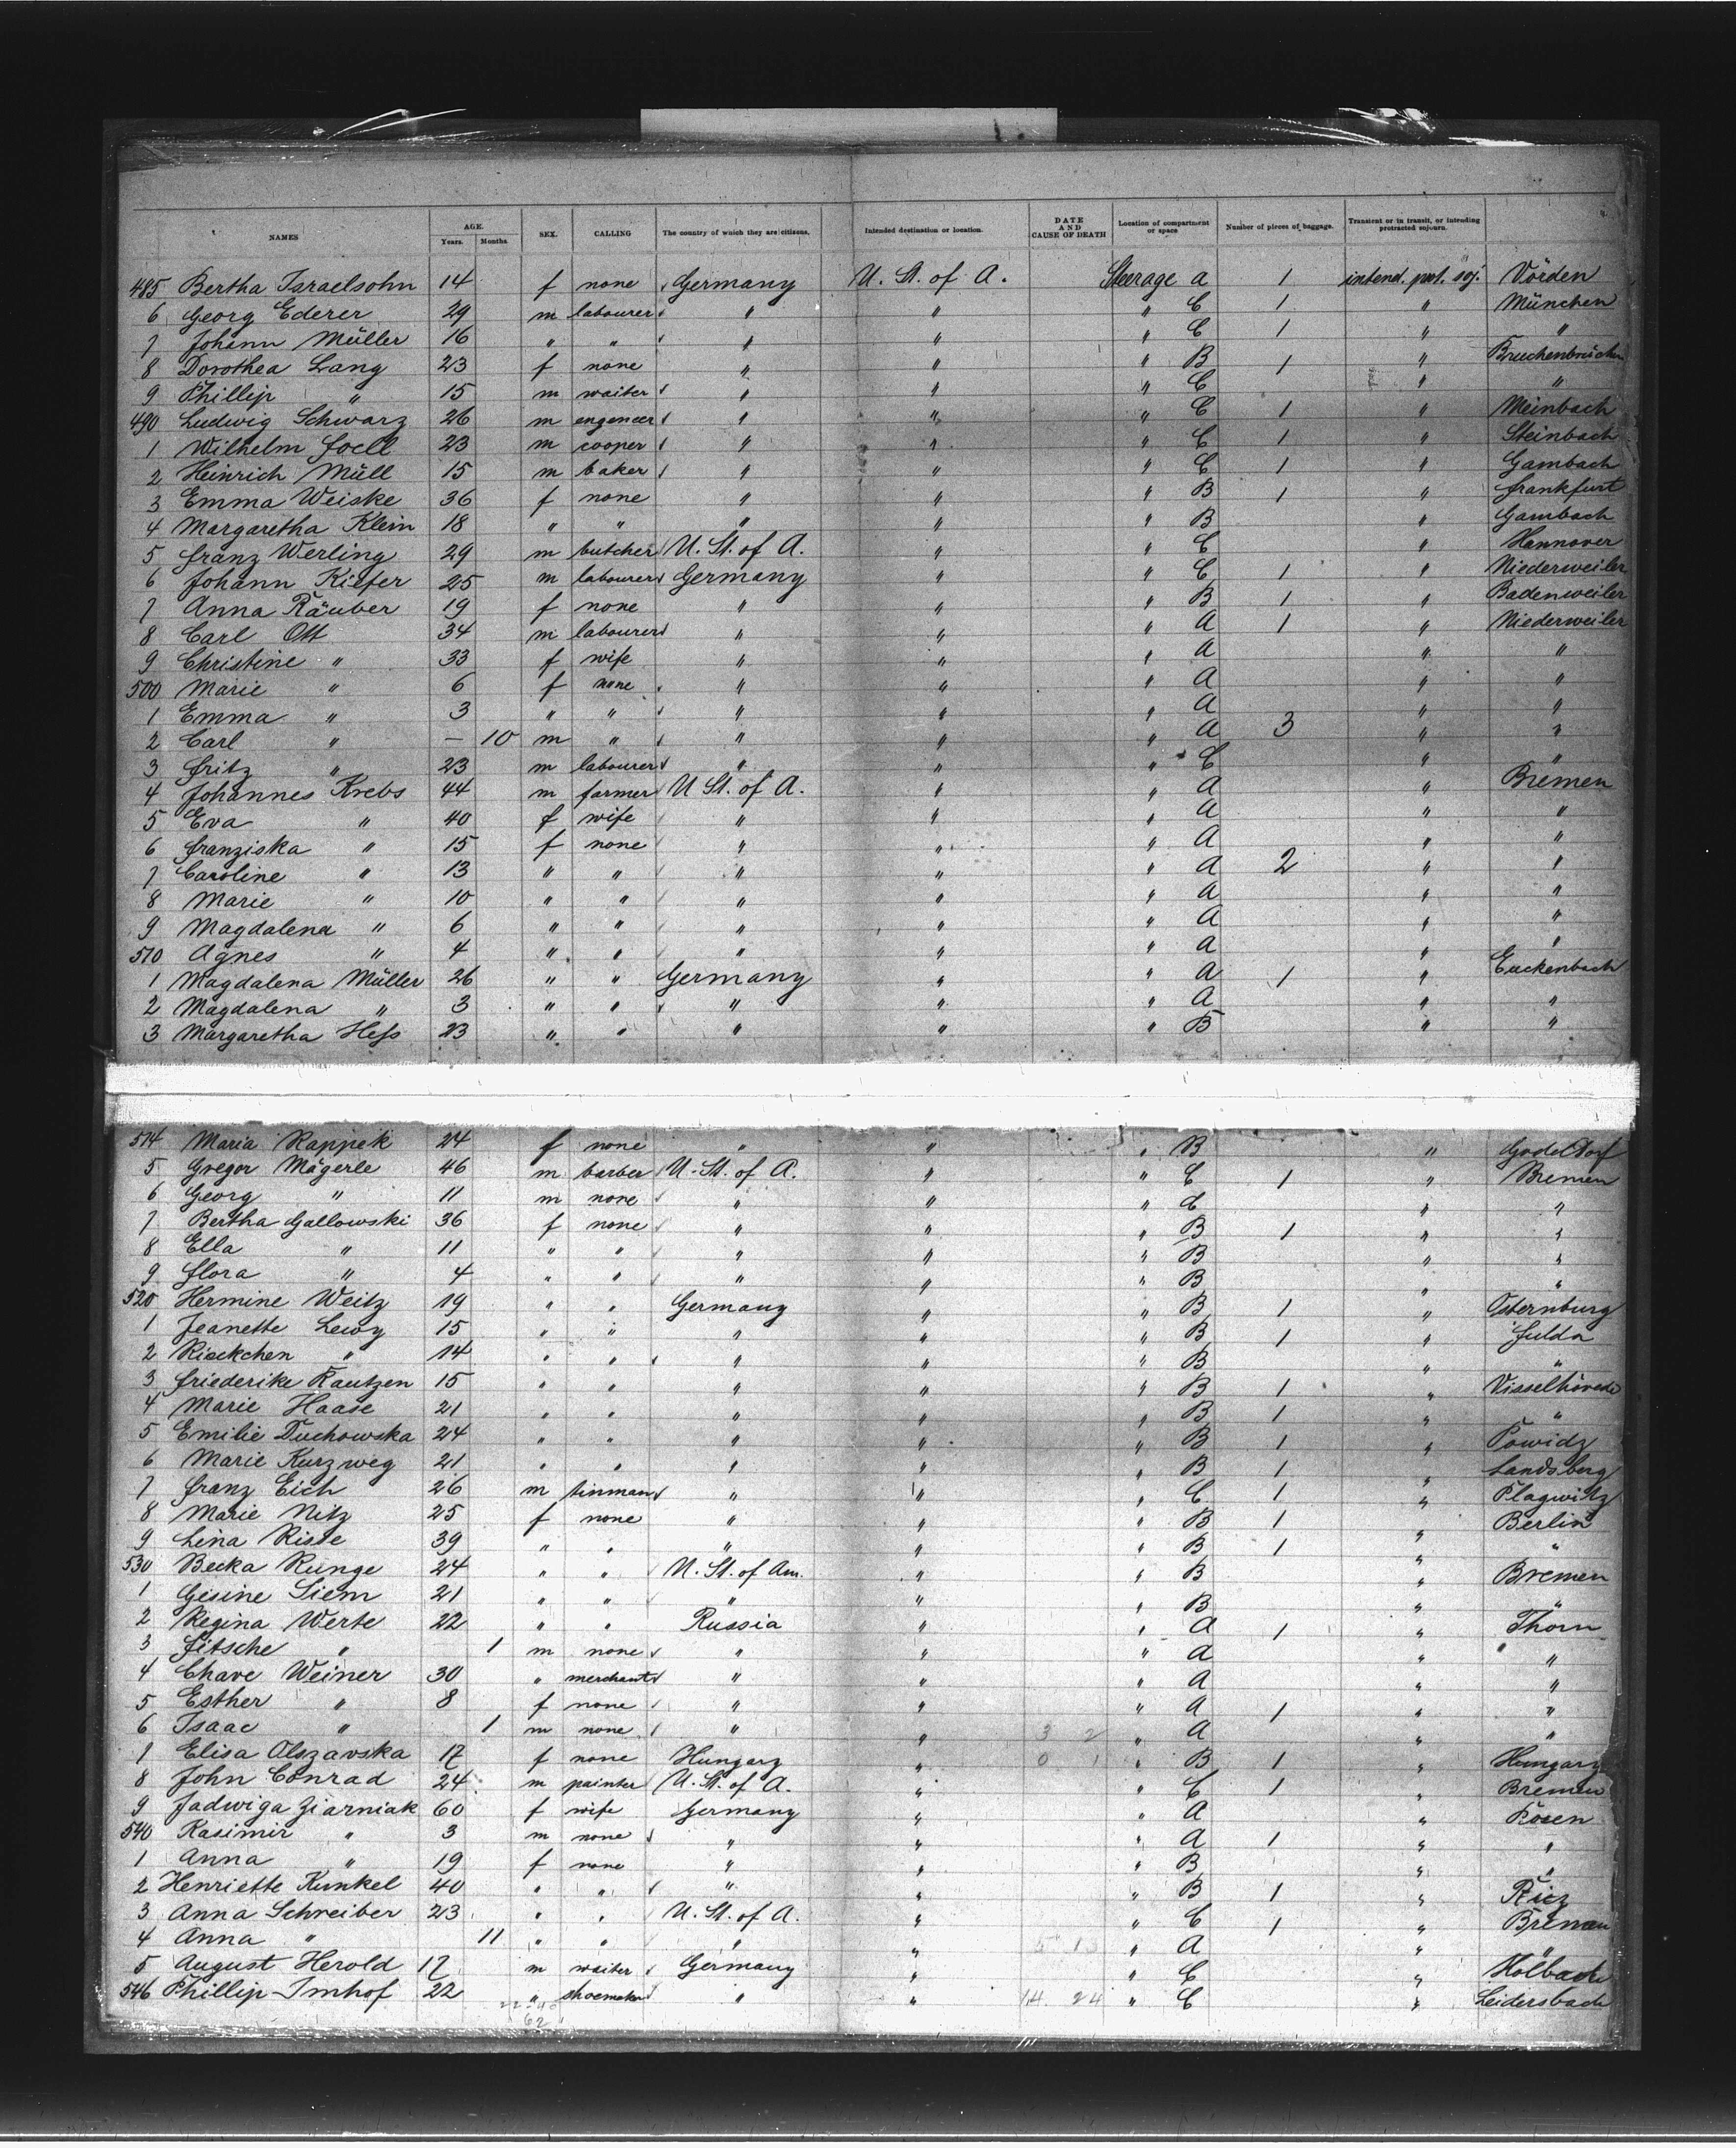 NAMES AGE. Years. Months. SEX. CALLING The country of which they are citizens. Intended destination or location. DATE AND CAUSE OF DEATH Location of compartment or space Number of pieces of baggage. Transient or in transit, or intending protracted sojourn.
485 Bertha Israelsohn 14 f none Germany U. St. of A. Steerage a 1 intend. prot. soj. Vörden
6 Georg Ederer 29 m labourer " " " C 1 " München
7 Johann Müller 16 " " " " " C 1 " "
8 Dorothea Lang 23 f none " " " B 1 "
9 Phillip " 15 m waiter " " " C " "
490 Ludwig Schwarz 26 m engeneer " " " C 1 " Meinbach
1 Wilhelm Joell 23 m cooper " " " C 1 " Steinbach
2 Heinrich Müll 15 m baker " " " C 1 " Gambach
3 Emma Weiske 36 f none " " " B 1 " Frankfurt
4 Margaretha Klein 18 " " " " " B " Gambach
5 Franz Werling 29 m butcher U. St. of A. " " C " Hannover
6 Johann Kiefer 25 m labourer Germany " " C 1 " Niederweiler
7 Anna Räuber 19 f none " " " B 1 " Badenweiler
8 Carl Ott 34 m labourer " " " A 1 " Niederweiler
9 Christine " 33 f wife " " " A " "
500 Marie " 6 f none " " " A " "
1 Emma " 3 " " " " " A " "
2 Carl " – 10 m " " " " A 3 " "
3 Fritz " 23 m labourer " " " C " "
4 Johannes Krebs 44 m farmer U St. of A. " " A " Bremen
5 Eva " 40 f wife " " " A " "
6 Franziska " 15 f none " " " A " "
7 Caroline " 13 " " " " " A 2 " "
8 Marie " 10 " " " " " A " "
9 Magdalena " 6 " " " " " A " "
510 Agnes " 4 " " " " " A " "
1 Magdalena Müller 26 " " Germany " " A 1 " Enckenbach
2 Magdalena " 3 " " " " " A " "
3 Margaretha Heß 23 " " " " " B " "
514 Maria Rappek 24 f none " " " B "
5 Gregor Mägerle 46 m barber U. St. of A. " " C 1 " Bremen
6 Georg " 11 m none " " " C " "
7 Bertha Gallowski 36 f none " " " B 1 " "
8 Ella " 11 " " " " " B " "
9 Flora " 4 " " " " " B " "
520 Hermine Weitz 19 " " Germany " " B 1 " Osternburg
1 Jeanette Lewy 15 " " " " " B 1 " Fulda
2 Rieckchen " 14 " " " " " B " "
3 Friederike Rautzen 15 " " " " " B 1 " Visselhövede
4 Marie Haase 21 " " " " " B 1 " "
5 Emilie Duchowska 24 " " " " " B 1 " Powidz
6 Marie Kurzweg 21 " " " " " B 1 " Landsberg
7 Franz Eich 26 m tinman " " " C 1 " Plagwitz
8 Marie Nitz 25 f none " " " B 1 " Berlin
9 Lina Riste 39 " " " " " B 1 " "
530 Becka Runge 24 " " U. St. of Am. " " B " Bremen
1 Gesine Siem 21 " " " " " B " "
2 Regina Werte 22 " " Russia " " A 1 " Thorn
3 Jitsche " 1 m none " " " A " "
4 Chave Weiner 30 " merchant " " " A " "
5 Esther " 8 f none " " " A 1 " "
6 Isaac " 1 m none " " 3 2 " A " "
7 Elisa Olszavska 17 f none Hungary " 0 1 " B 1 " Hungary
8 John Conrad 24 m painter U. St. of A. " " C 1 " Bremen
9 Jadwiga Ziarniak 60 f wife Germany " " A " Posen
540 Kasimir " 3 m none " " " A 1 " "
1 Anna " 19 f none " " " B " "
2 Henriette Kunkel 40 " " " " " B 1 "
3 Anna Schreiber 23 " " U. St. of A. " " C 1 " Bremen
4 Anna " 11 " " " " 5 13 " A " "
5 August Herold 17 m waiter Germany " " C "
546 Phillip Imhof 22 " shoemaker " " 14 24 " C " Leidersbach
62